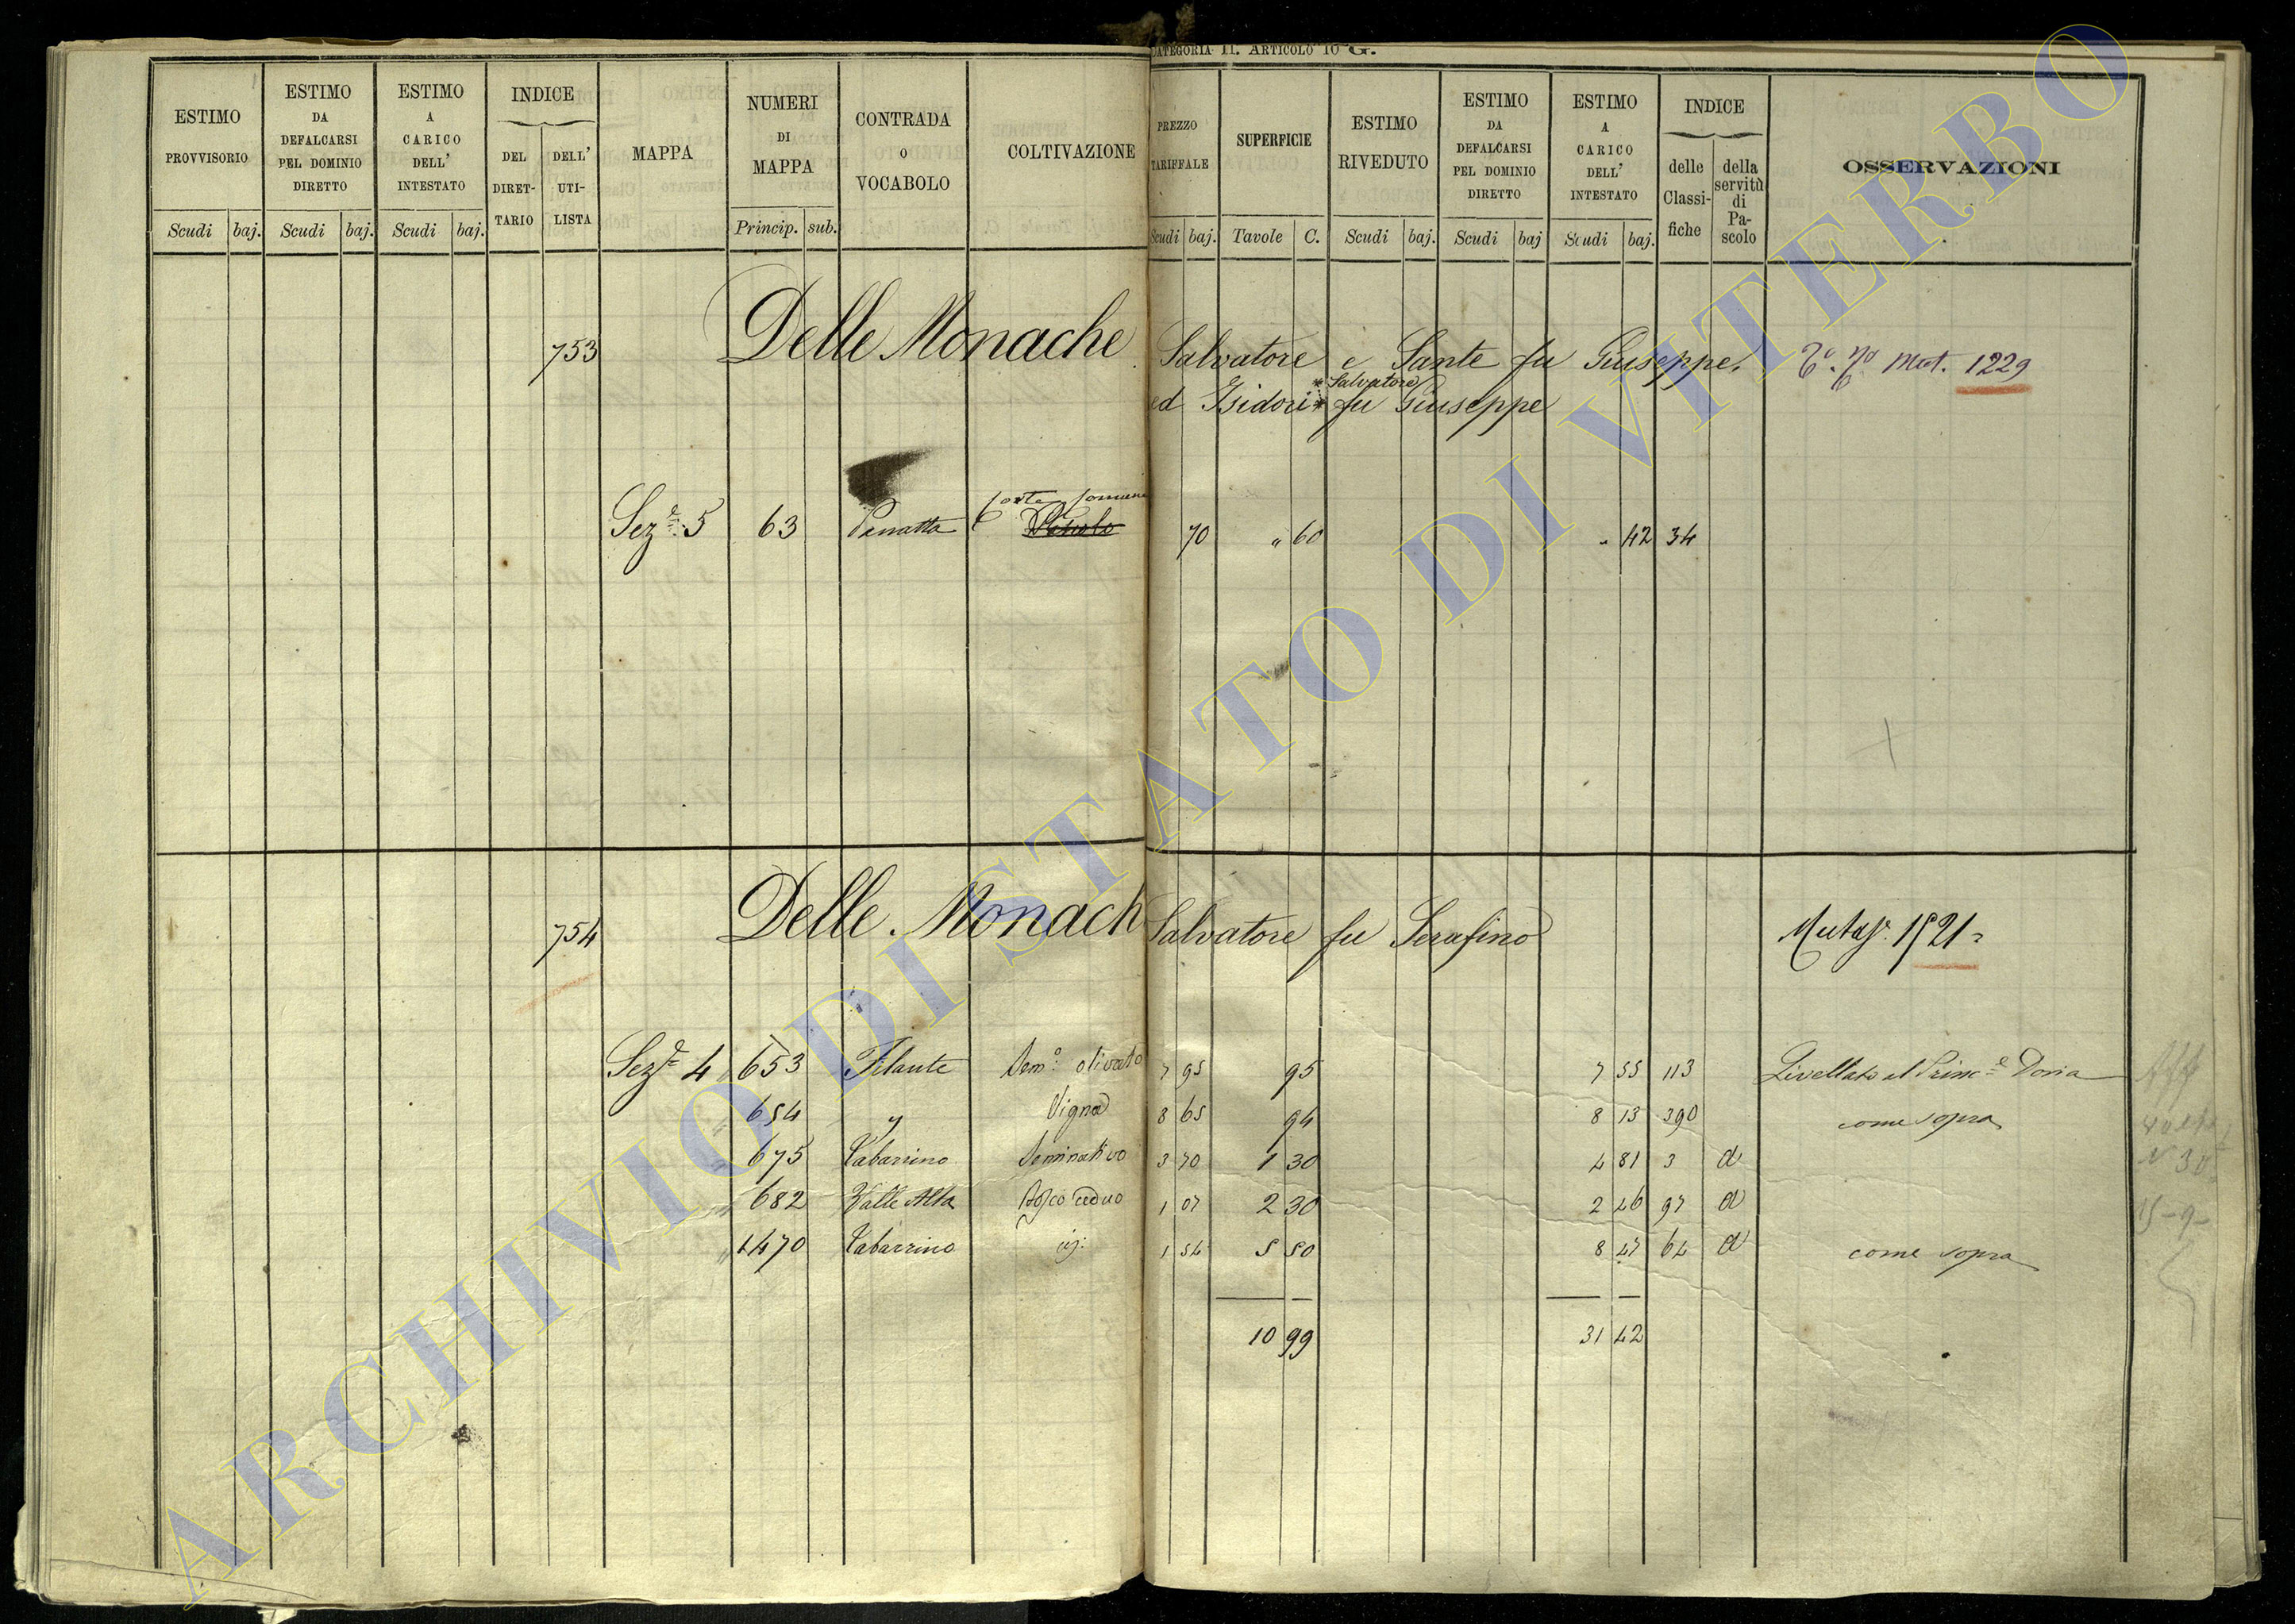 CATEGORIA II. ARTICOLO 10 G.
ESTIMO PROVVISORIO
Scudi baj.
ESTIMO DA DEFALCARSI PEL DOMINIO DIRETTO
Scudi baj.
ESTIMO A CARICO DELL' INTESTATO
Scudi baj.
INDICE
DEL DIRET-TARIO
DELL' UTI-LISTA
MAPPA
NUMERI DI MAPPA
Princip. sub.
CONTRADA O VOCABOLO
COLTIVAZIONE
PREZZO TARIFFALE
Scudi baj.
SUPERFICIE
Tavole C.
ESTIMO RIVEDUTO
Scudi baj.
ESTIMO DA DEFALCARSI PEL DOMINIO DIRETTO
Scudi baj
ESTIMO A CARICO DELL' INTESTATO
Scudi baj.
INDICE
delle Classi-fiche
della servitù di Pa-scolo
OSSERVAZIONI
753 Delle Monache Salvatore e Sante fu Giuseppe. Mut. 1229
* Salvatore
ed Isidori * fu Giuseppe
Corte Comune
Sez.e 5 63 70 " 60 " 42 34
754 Delle Monach Salvatore fu Serafino 1521
Sez.e 4 653 Filante Sem.o olivato 7 95 95 7 55 113 Livellato al Princ.e Doria
" 654 " Vigna 8 65 94 8 13 390 come sopra
" 675 Tabarrino Seminativo 3 70 1 30 4 81 3 a
" 682 Valle Alta Bosco ceduo 1 07 2 30 2 46 97 a
" 1470 Tabarrino 1 54 5 50 8 47 64 a come sopra
10 99 31 42
ARCHIVIO DI STATO DI VITERBO